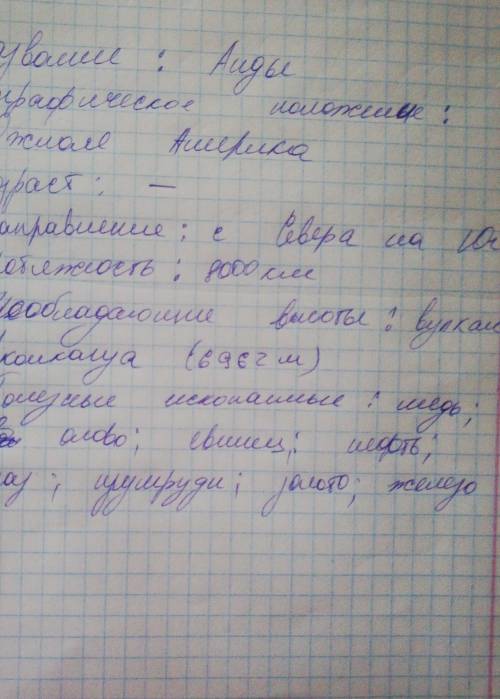 звание : Анды
графическое положение :
жная Америка
зраст : —
аправление : с Севера на Юг
отяжность : 8000 км
реобладающие высоты : вулкан
конкагуа (6962 м)
олезные ископаемые : медь;
олово; свинец; нефть;
газ; изумруды; золото; железо